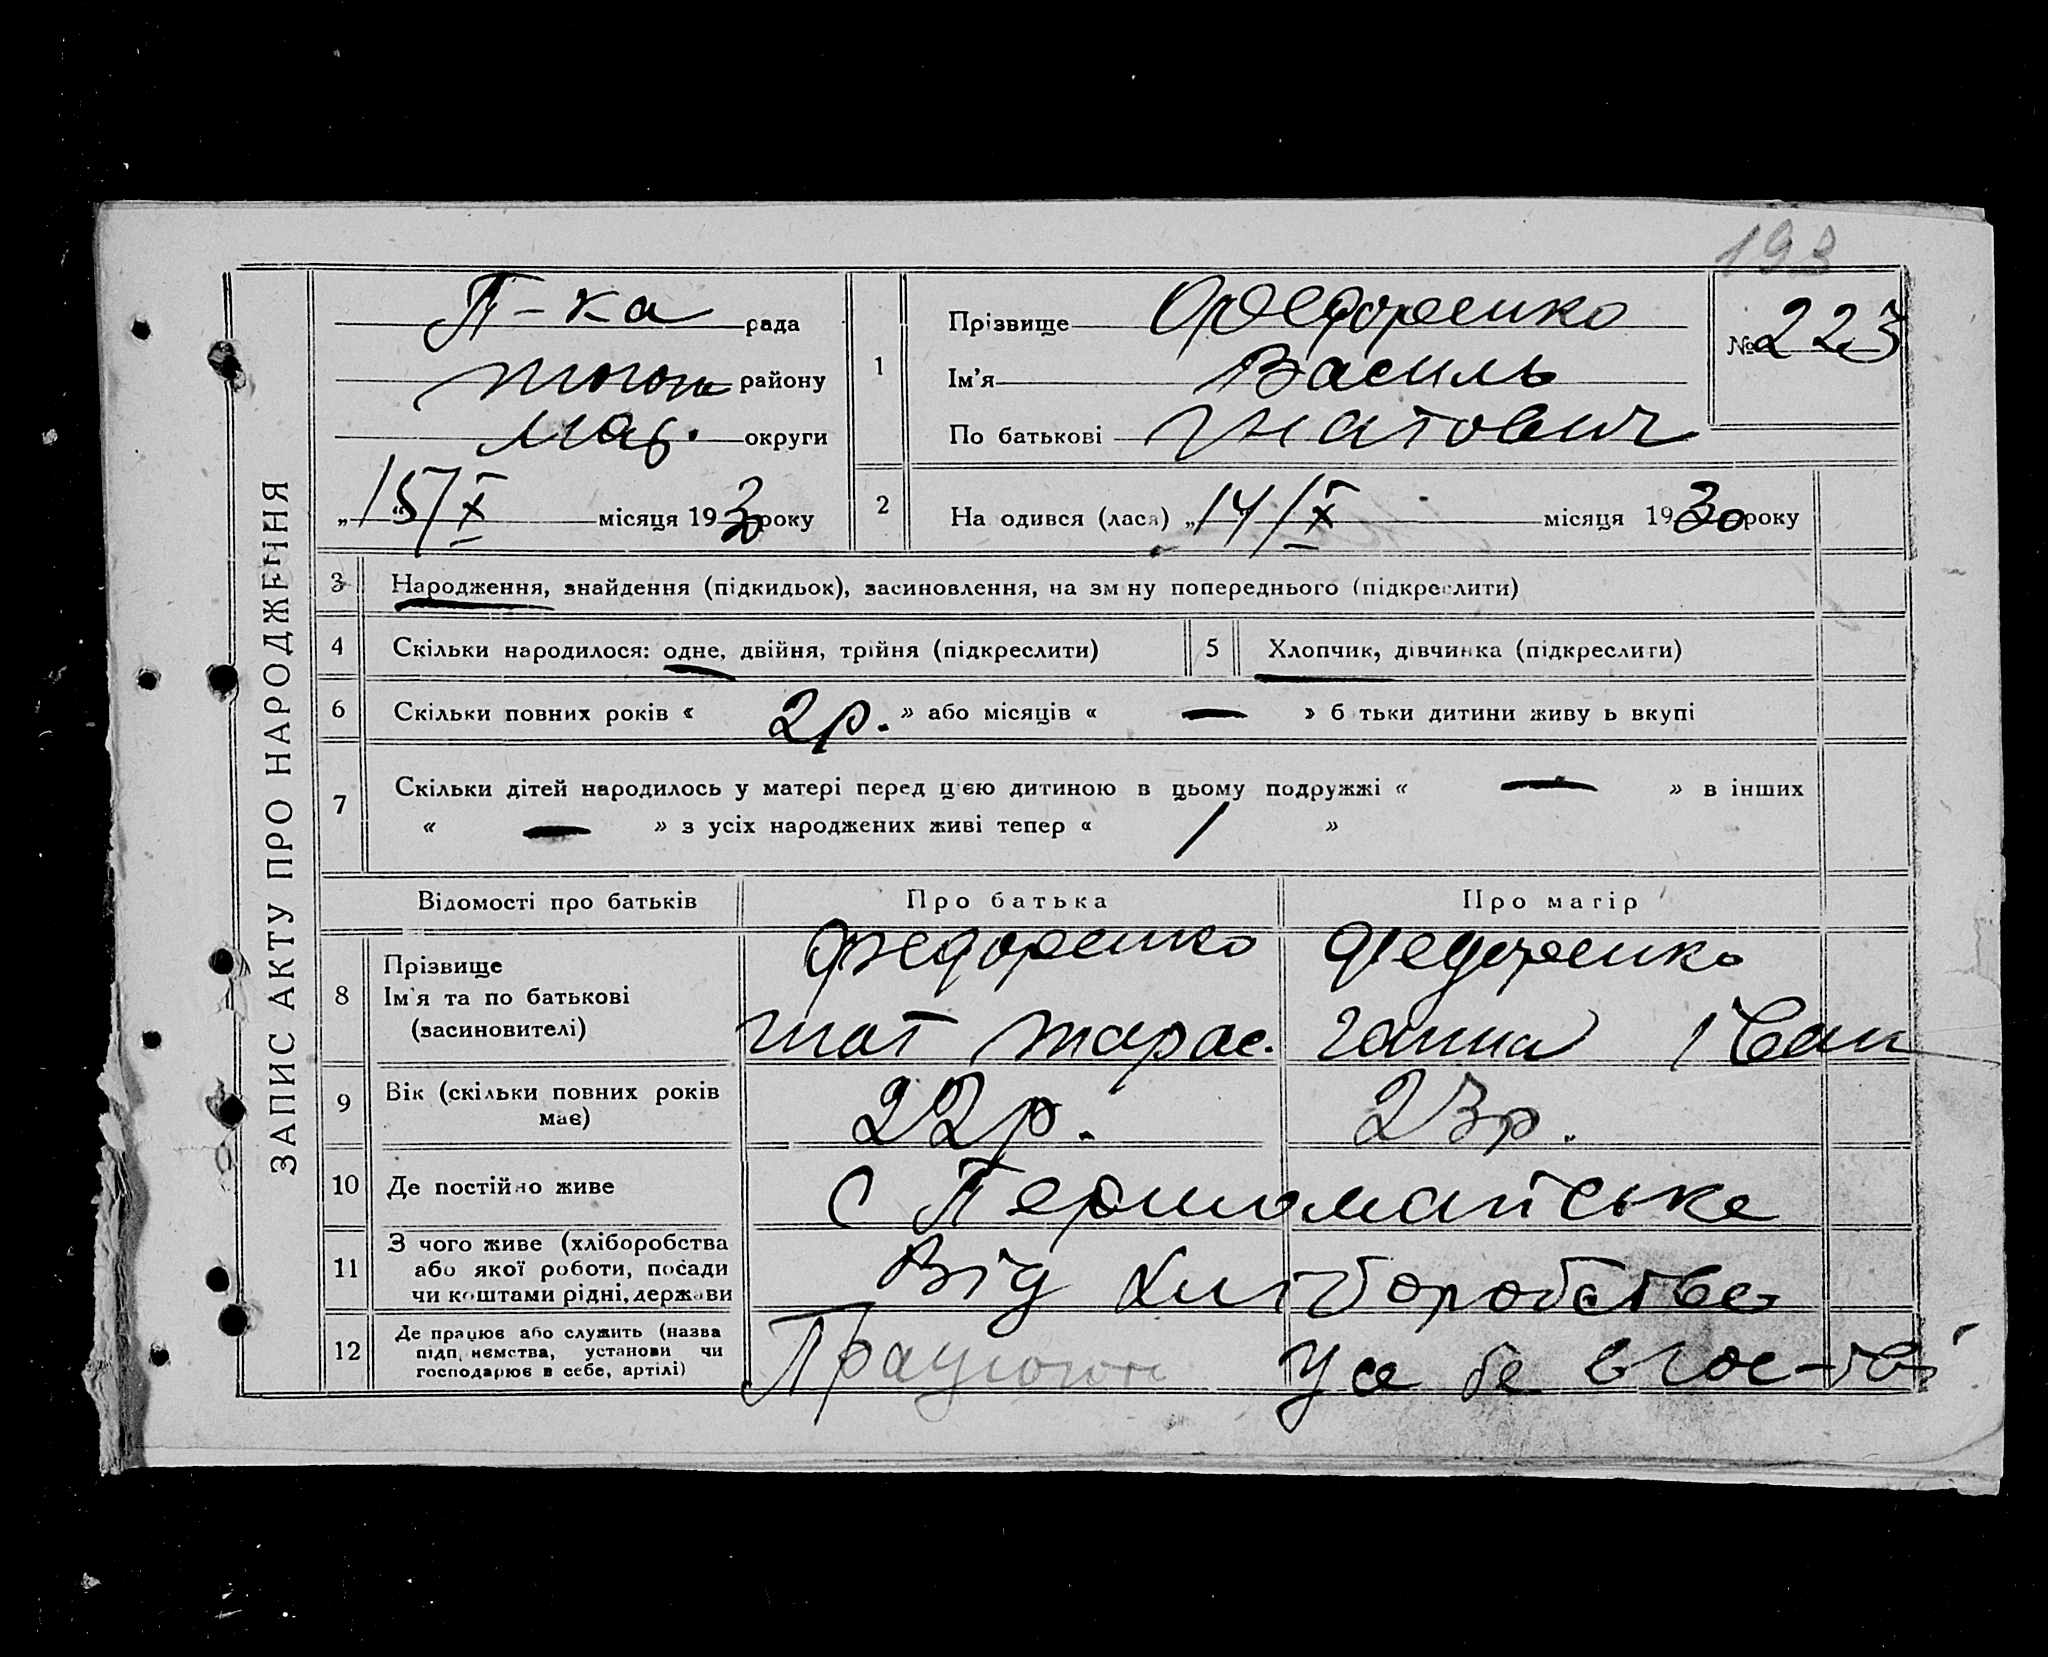 193
ЗАПИС АКТУ ПРО НАРОДЖЕННЯ
П-ка рада
району
Мар. округи
„15/X місяця 1930 року
1
Прізвище Федоренко
Ім'я Василь
По батькові Гнатович
№ 223
2 На одився (лася) „14/X місяця 1930 року
3 Народження, знайдення (підкидьок), засиновлення, на зм ну попереднього (підкреслити)
4 Скільки народилося: одне, двійня, трійня (підкреслити) 5 Хлопчик, дівчинка (підкреслити)
6 Скільки повних років « 2р. » або місяців « — » б тьки дитини живу ь вкупі
7 Скільки дітей народилось у матері перед цією дитиною в цьому подружжі « — » в інших
« — » з усіх народжених живі тепер « 1 »
Відомості про батьків Про батька Про матір
8 Прізвище Федоренко Федоренко
Ім'я та по батькові
(засиновителі) Гнат Тарас. Ганна Іван
9 Вік (скільки повних років має) 22р. 23р.
10 Де постійно живе с Першомайське
11 З чого живе (хліборобства
або якої роботи, посади
чи коштами рідні, держави Від хліборобства
12 Де працює або служить (назва
підп иємства, установи чи
господарює в себе, артілі) Працюют у себе в гос-тві